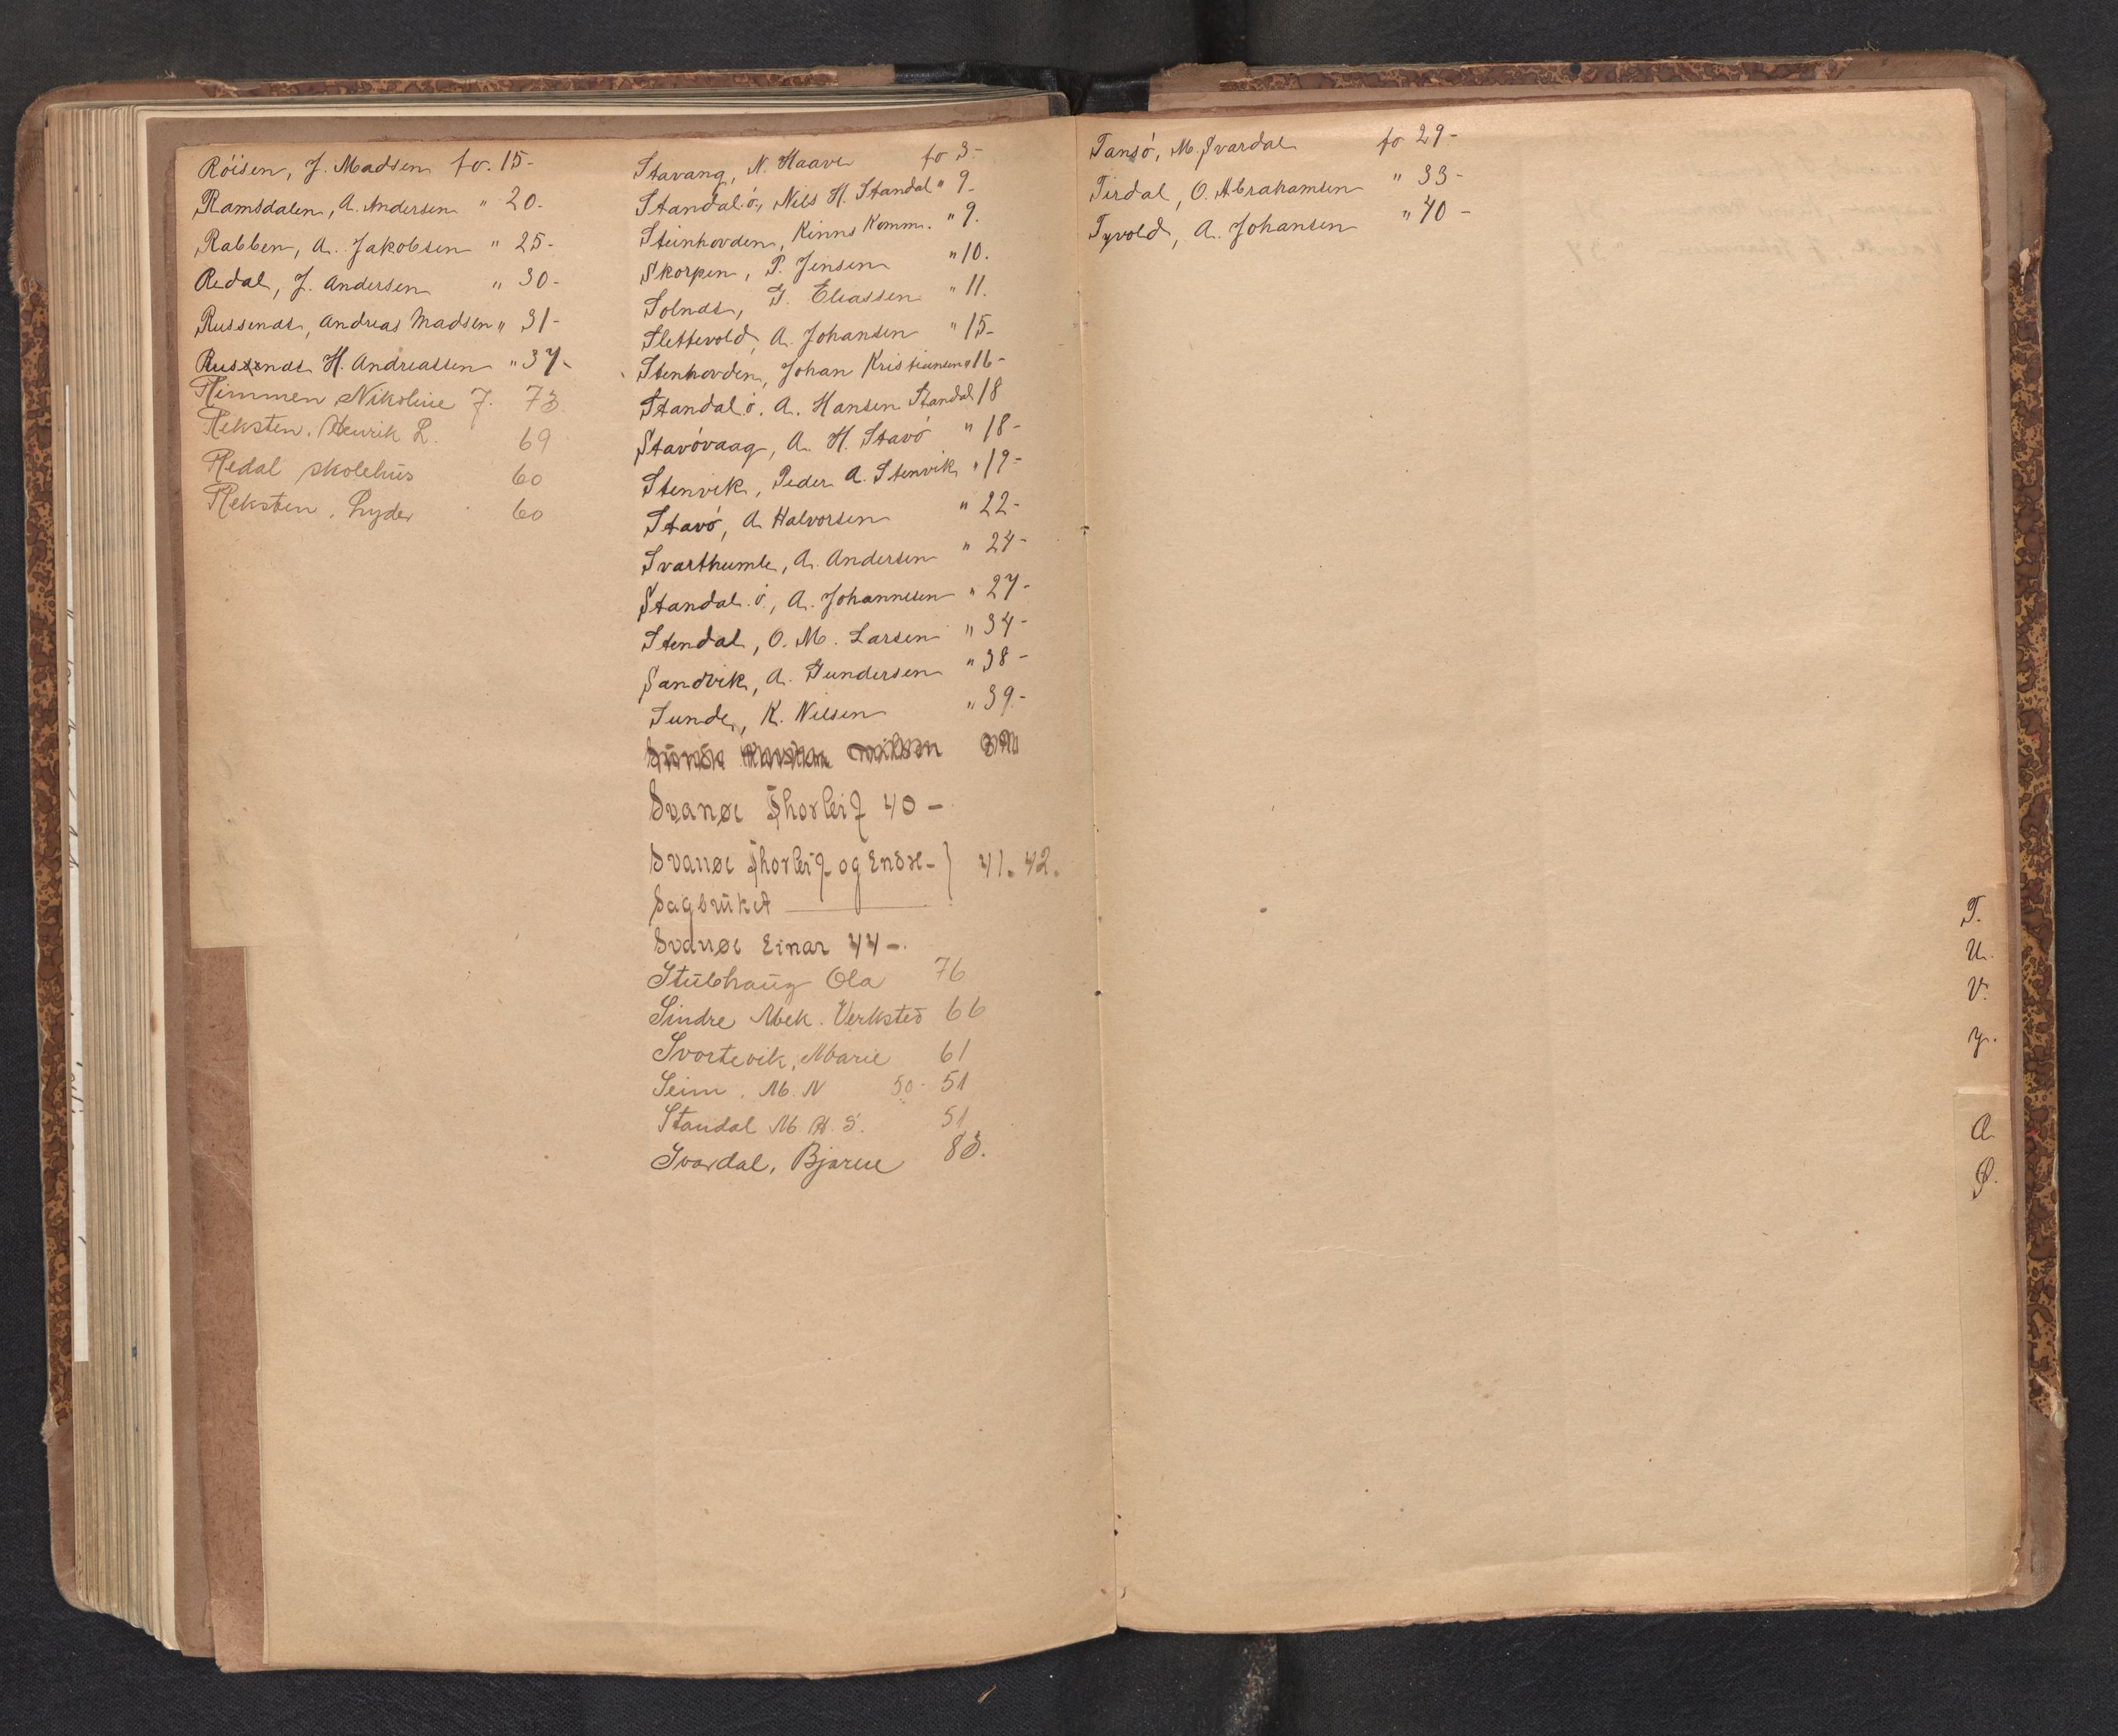 Röisen, J. Madsen fo. 15-
Ramsdalen, A. Andersen " 20-
Rabben, A. Jakobsen " 25-
Redal, J. Andersen " 30-
Russenes, Andreas Madsen " 31-
Russenes H. Andreassen " 37-
Rimmen Nikoline J. 73
Reksten. Henrik L. 69
Redal skolehus 60
Reksten. Lyder 60
Stavang, N. Haave fo 3-
Standal.ö., Nils H. Standal " 9-
Steinhovden, Kinns Komm. " 9.
Skorpen, P. Jensen " 10.
Solnes, G. Eliassen " 11.
Slettevold, A. Johansen " 15-
Stenhovden, Johan Kristiansen " 16-
Standal.ö. A. Hansen Standal 18
Stavövaag, A. H. Stavö " 18-
Stenvik, Peder A. Stenvik " 19-
Stavö, A Halvorsen " 22-
Svarthumle, A. Andersen " 24-
Standal.ö., A. Johannesen " 27-
Stendal, O. M. Larsen " 34-
Sandvik, A. Gundersen " 38-
Sunde, K. Nilsen " 39-
Svanøe Thorleif 40-
Svanøe Thorleif og Endre- } 41. 42.
Sagbruket
Svanøe Einar 44-.
Stubhaug Ola 76
Sindre Mek. Verksted 66
Svortevik, Marie 61
Seim. M. N 50- 51
Standal M. H. S. 51
Svardal, Bjarne 83.
Tansö, M. Svardal fo 29-
Tirdal, O. Abrahamsen " 33-
Tyvold, A. Johansen " 40-
T.
U.
V.
Y.
Ø.